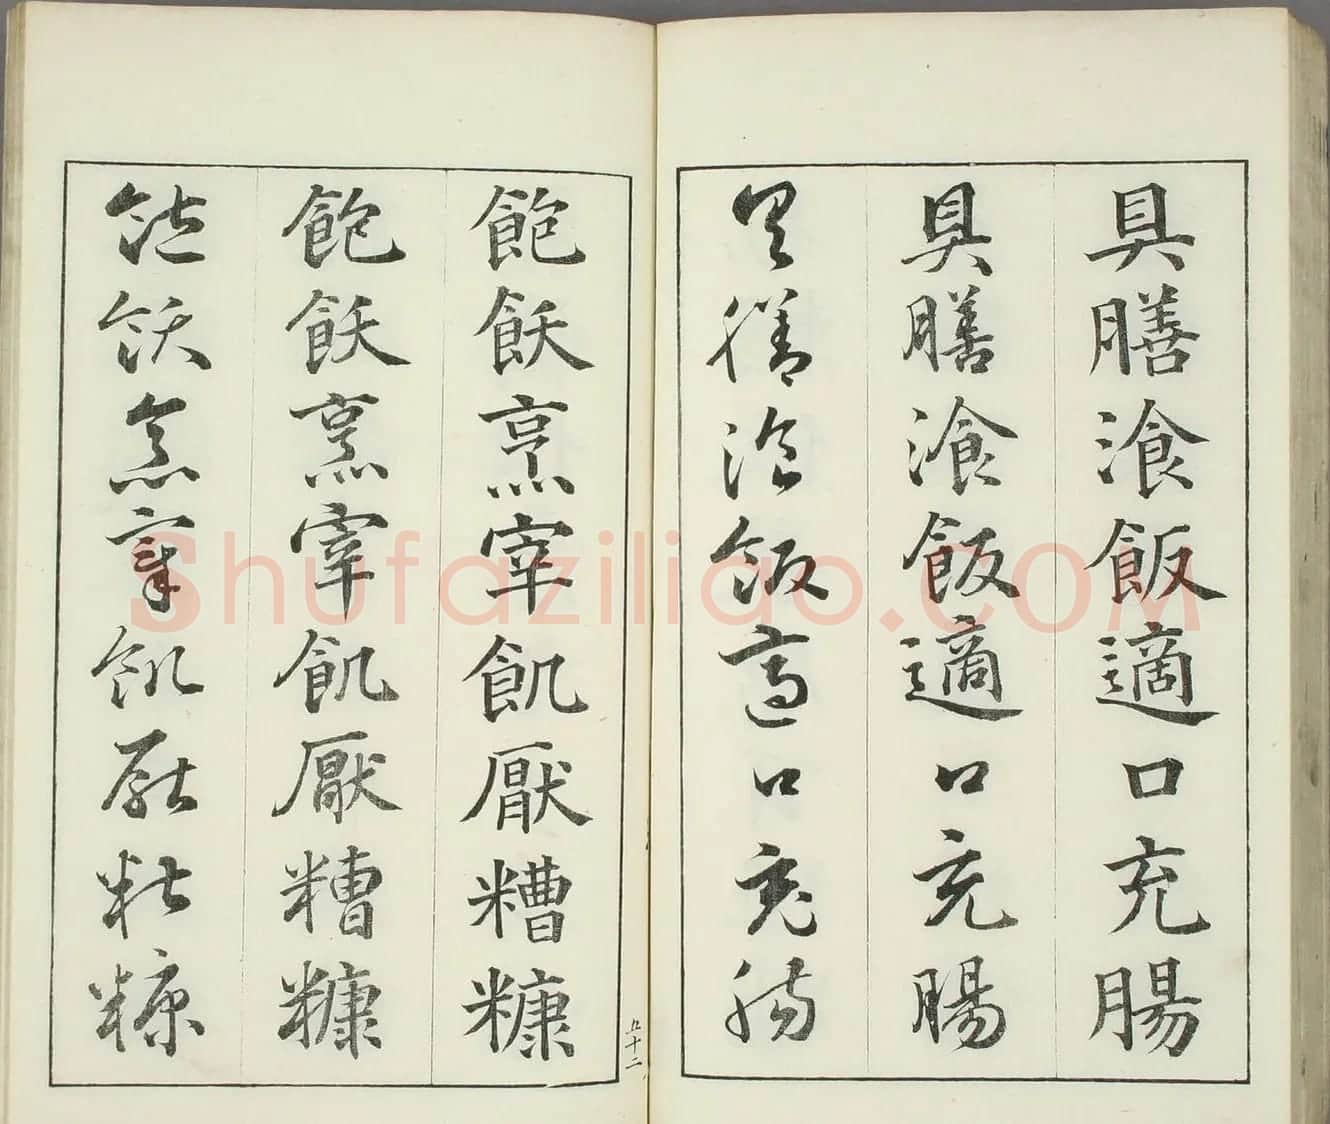 具膳飡飯適口充腸
具膳飡飯適口充腸
具膳飡飯適口充腸
飽飫烹宰飢厭糟糠
飽飫烹宰飢厭糟糠
飽飫烹宰飢厭糟糠
五十二
Shufaziliao.COM